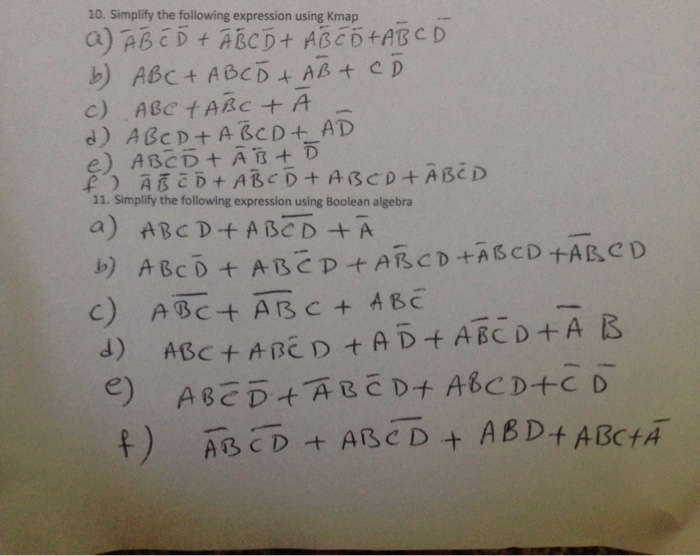 10. Simplify the following expression using Kmap
a) A̅B̅C̅D̅ + A̅B̅CD̅ + AB̅C̅D̅ + AB̅CD̅
b) ABC + ABCD̅ + AB̅ + CD̅
c) ABC + AB̅C + A̅
d) ABCD + AB̅CD + AD̅
e) ABC̅D̅ + A̅B̅ + D̅
f) A̅B̅C̅D̅ + AB̅CD̅ + ABCD + A̅BC̅D
11. Simplify the following expression using Boolean algebra
a) ABCD + AB\overline{CD} + A̅
b) ABCD̅ + ABC̅D + AB̅CD + A̅BCD + \overline{AB}CD
c) A\overline{BC} + \overline{AB}C + ABC̅
d) ABC + ABC̅D + AD̅ + AB̅C̅D + A̅B
e) ABC̅D̅ + A̅BC̅D + ABCD + C̅D̅
f) \overline{AB}\overline{CD} + AB\overline{CD} + ABD + ABC + A̅